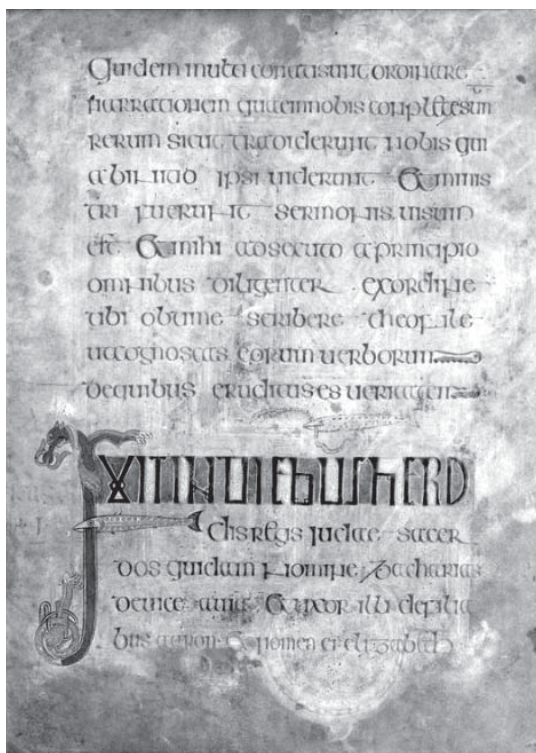 Quidem multi conati sunt ordinare
narrationem quae in nobis completae sun
rerum sicut tradiderunt nobis qui
ab initio ipsi uiderunt Et minis
tri fuerunt sermonis uisum
est Et mihi adsecuto a principio
omnibus diligenter ex ordine
tibi obtime scribere theofile
ut cognoscas eorum uerborum
de quibus eruditus es ueritatem
FUIT IN DIEBUS HEROD
dis regis iudae sacer
dos quidam nomine zacharias
de uice auia Et uxor illi de filia
bus aaron Et nomen ei elizabeth